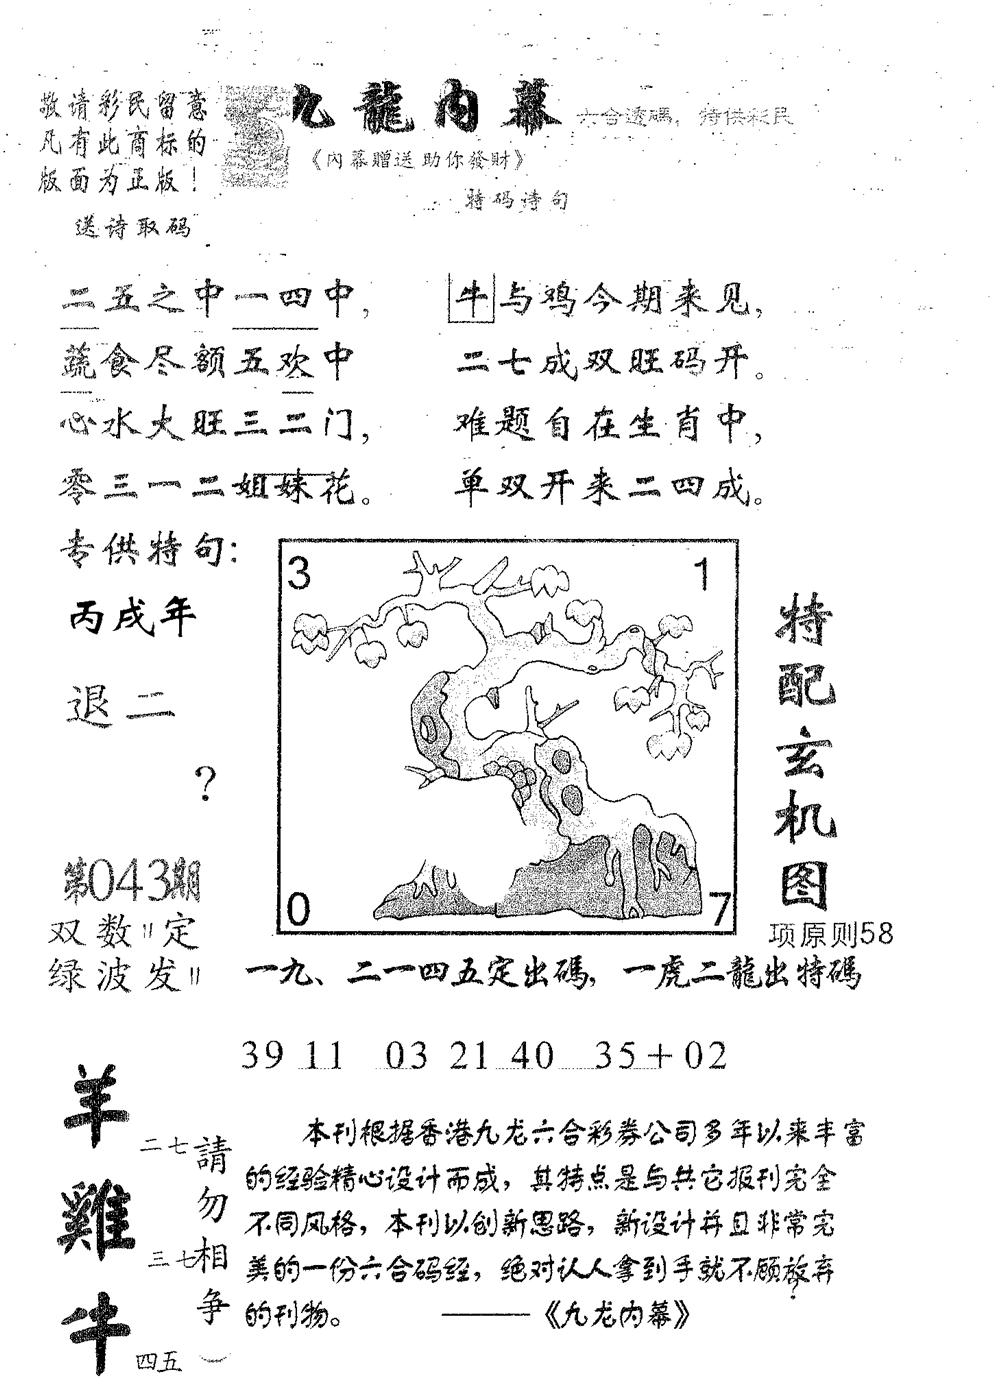 敬请彩民留意
凡有此商标的
版面为正版！
送诗取码
九龍内幕
六合透碼，特供彩民
《内幕贈送 助你發財》
特码诗句
二五之中一四中，
蔬食尽额五欢中
心水大旺三二门，
零三一二姐妹花。
牛与鸡今期来见，
二七成双旺码开。
难题自在生肖中，
单双开来二四成。
专供特句：
丙戌年
退二
？
第043期
双数〃定
绿波发〃
3 1
0 7
特配玄机图
项原则58
一九、二一四五定出碼，一虎二龍出特碼
39 11 03 21 40 35＋02
羊
二七
雞
三七
牛
四五
請勿相争
本刊根据香港九龙六合彩券公司多年以来丰富
的经验精心设计而成，其特点是与共它报刊完全
不同风格，本刊以创新思路，新设计并且非常完
美的一份六合码经，绝对认人拿到手就不顾放弃
的刊物。 ——《九龙内幕》
?